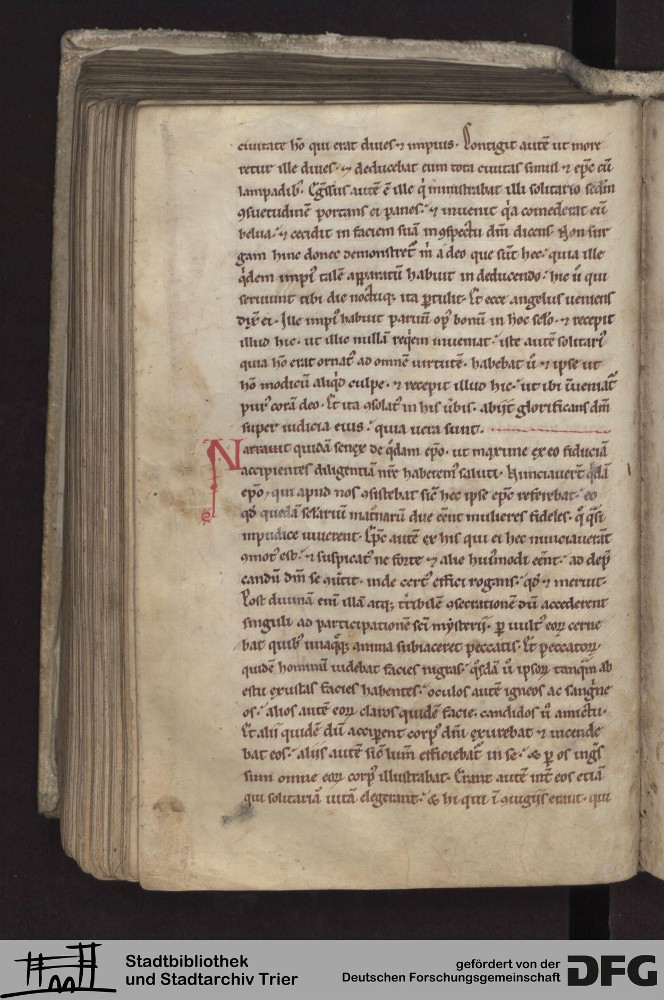 ciuitate hõ qui erat diues ⁊ impius. Contigit autẽ ut more
retur ille diues. ⁊ deducebat eum tota ciuitas simul ⁊ epẽ cũ
lampadib᷒. autẽ ẽ ille q̇ ministrabat illi solitario scdm̃
ꝯsuetudinẽ portans ei panes. ⁊ inuenit q̇a comederat eũ
belua. ⁊ cecidit in faciem suã in ꝯspectu dñi dicens. Non sur
gam hinc donec demonstret᷑ m̃ a deo que sũt hec. quia ille
q̇dem impi᷒ talẽ apparatũ habuit in deducendo. hic ũ qui
seruiuit tibi die noctuq; ita ꝑtulit. Et ecce angelus ueniens
dix̃ ei. Ille impi᷒ habuit paruũ op᷒ bonũ in hoc sclo. ⁊ recepit
illud hic. ut illic nullã req̇em inueniat. iste autẽ solitari᷒
quia hõ erat ornat᷒ ad omnẽ uirtutẽ. habebat ũ ⁊ ipse ut
hõ modicũ aliq̇d culpe. ⁊ recepit illud hic. ut ibi ĩueniat᷑
pur᷒ corã deo. Et ita ꝯsolat᷒ in his ũbis. abijt glorificans dm̃
super iudicia eius. quia uera sunt.
Narrauit quidã senex de q̇dam ep̃o. ut maxime ex eo fiduciã
accipientes diligentiã nr̃e haberem᷒ saluti. Nunciauer̃t q̇dã
ep̃o, qui apud nos ꝯsistebat sic̃ hec ipse ep̃c referebat. eo
qd̃ quedã sclariũ matronarũ due cẽnt mulieres fideles. q̃ q̃si
inpudice uiuerent. Ep̃c autẽ ex his qui ei hec nunciauerãt
ꝯmot᷒ est. ⁊ suspicat᷒ ne forte ⁊ alie hui᷒modi eẽnt. ad dep̃
candũ dm̃ se ꝯũtit. inde cert᷒ effici rogans. qd̃ ⁊ meruit.
Post diuinã eni illã atq; t̃ribilẽ ꝯsecrationẽ dũ accederent
singuli ad participationẽ sc̃i mysterij. ꝑ uult᷒ eoꝝ cerne
bat quib᷒ unaq̃q; anima subiaceret peccatis. Et peccatoꝝ
quidẽ hominũ uidebat facies nigras. q̃sdã ũ ipsoꝝ tanq̃m ab
estu exustas facies habentes. oculos autẽ igneos ac sang̃ine
os. alios autẽ eoꝝ claros quidẽ facie. candidos ũ amictu.
Et alii quidẽ dũ acciperent corp᷒ dñi exurebat ⁊ incende
bat eos. aliis autẽ sic̃ lum̃ efficiebat᷑ in se. & ꝑ os ing̃s
sum omne eoꝝ corp᷒ illustrabat. Erant autẽ int̃ eos etiã
qui solitariã uitã elegerant. & hi qui ĩ ꝯiugijs erant. qui
Stadtbibliothek
und Stadtarchiv Trier
gefördert von der
Deutschen Forschungsgemeinschaft
DFG